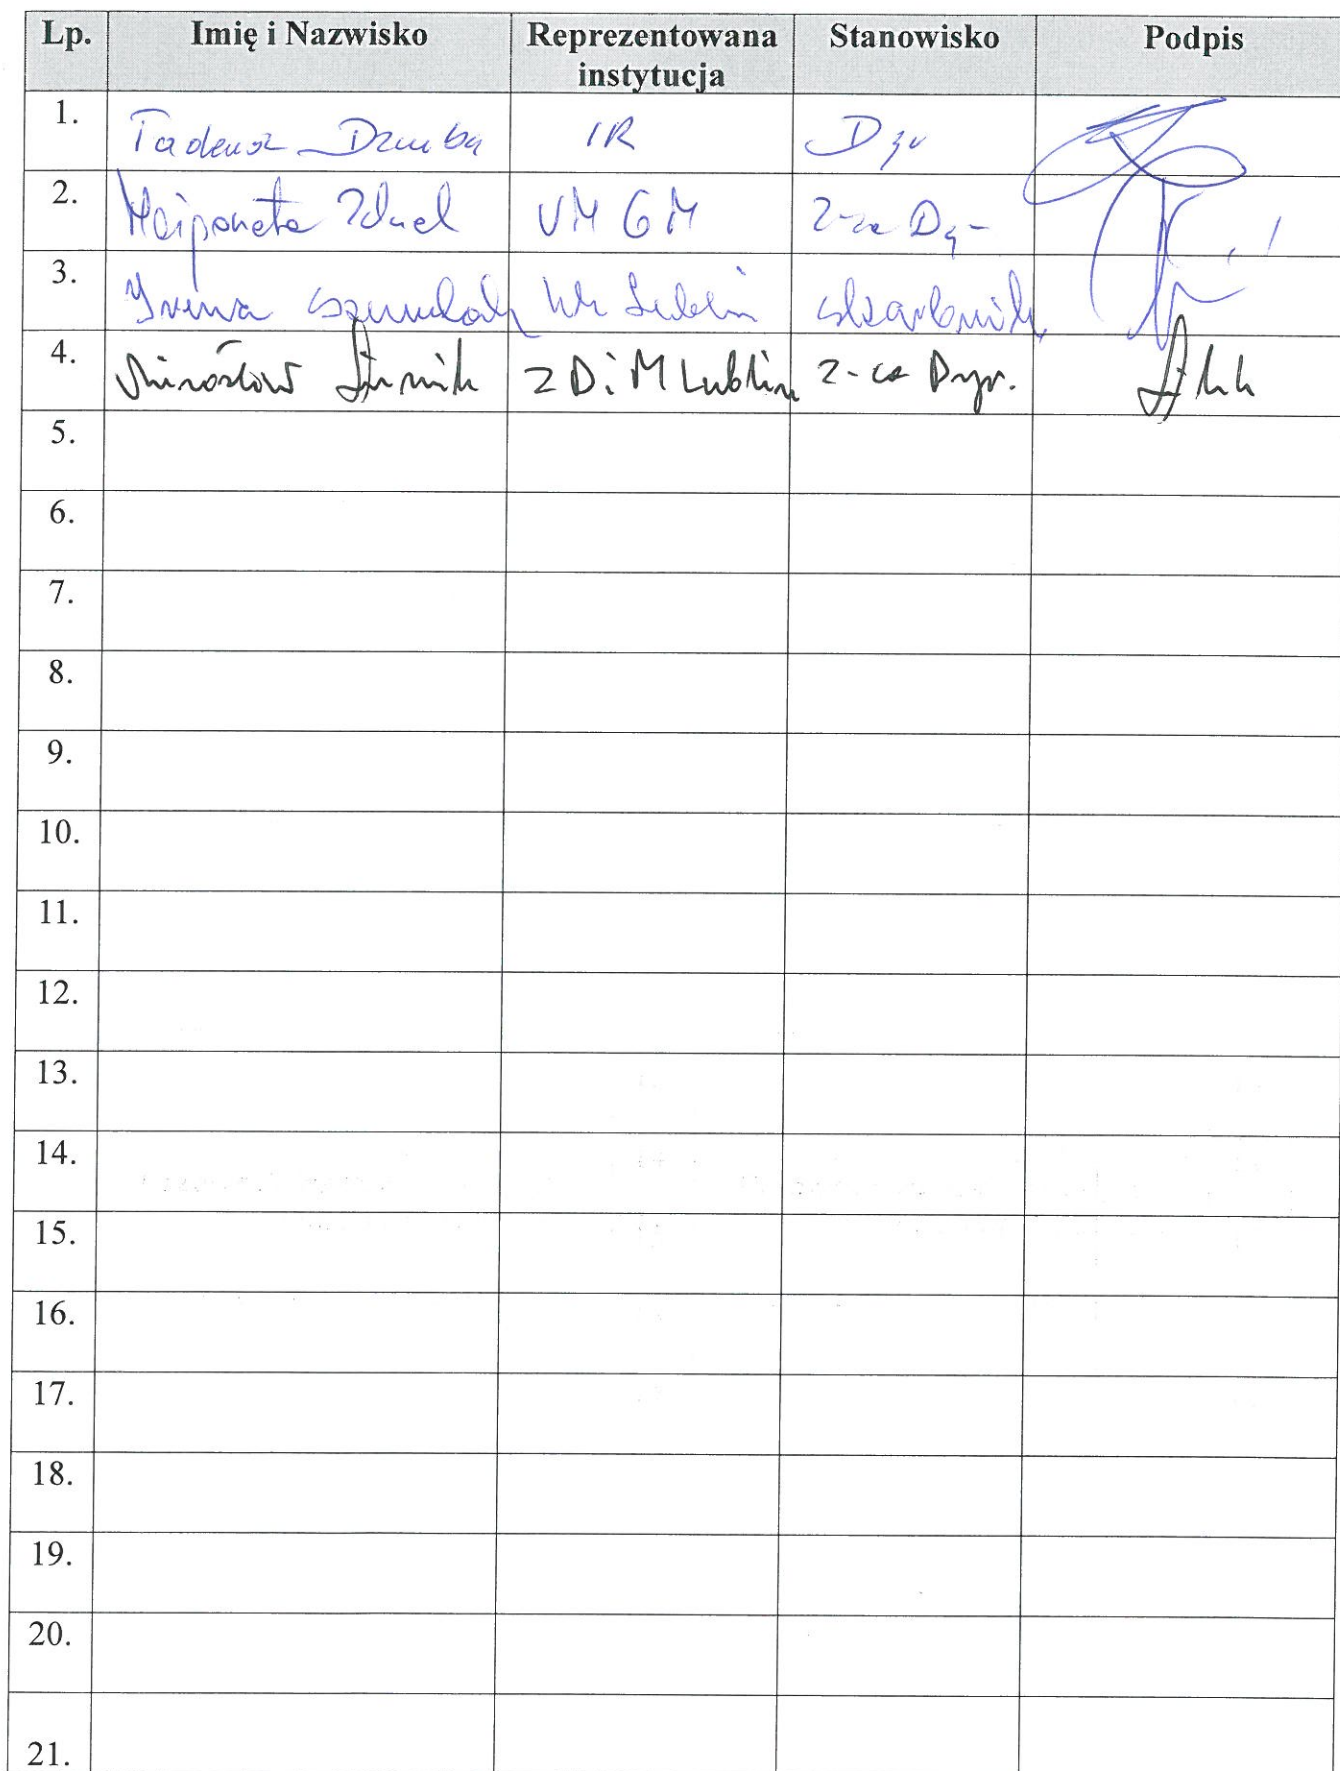 Lp. Imię i Nazwisko Reprezentowana instytucja Stanowisko Podpis
1. Tadeusz Dziuba IR Dyr
2. UM GM Z-ca Dy-
3. Irena UM Lublin skarbnik
4. Mirosław ZDiM Lublin Z-ca Dyr.
5.
6.
7.
8.
9.
10.
11.
12.
13.
14.
15.
16.
17.
18.
19.
20.
21.